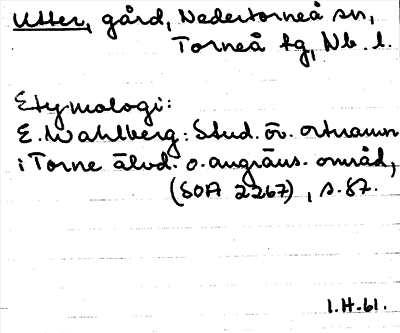 Utter, gård, Nedertorneå sn,
Torneå tg, Nb. l.
Etymologi:
E. Wahlberg: Stud. öv. ortnamn
i Torne älvd. o. angräns. områd,
(SOA 2267), s. 87.
1.H.61.